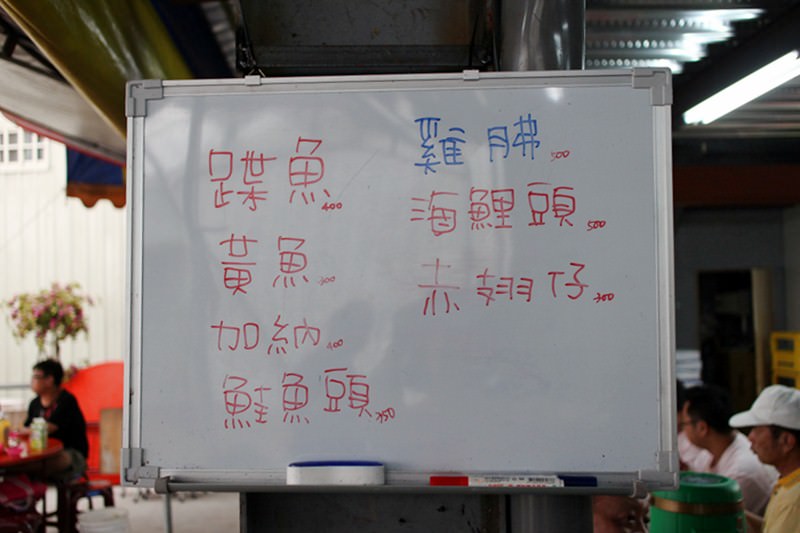 蹀魚 400
黃魚 300
加納 400
鮭魚頭 350
雞腓 500
海鯉頭 500
赤翅仔 300